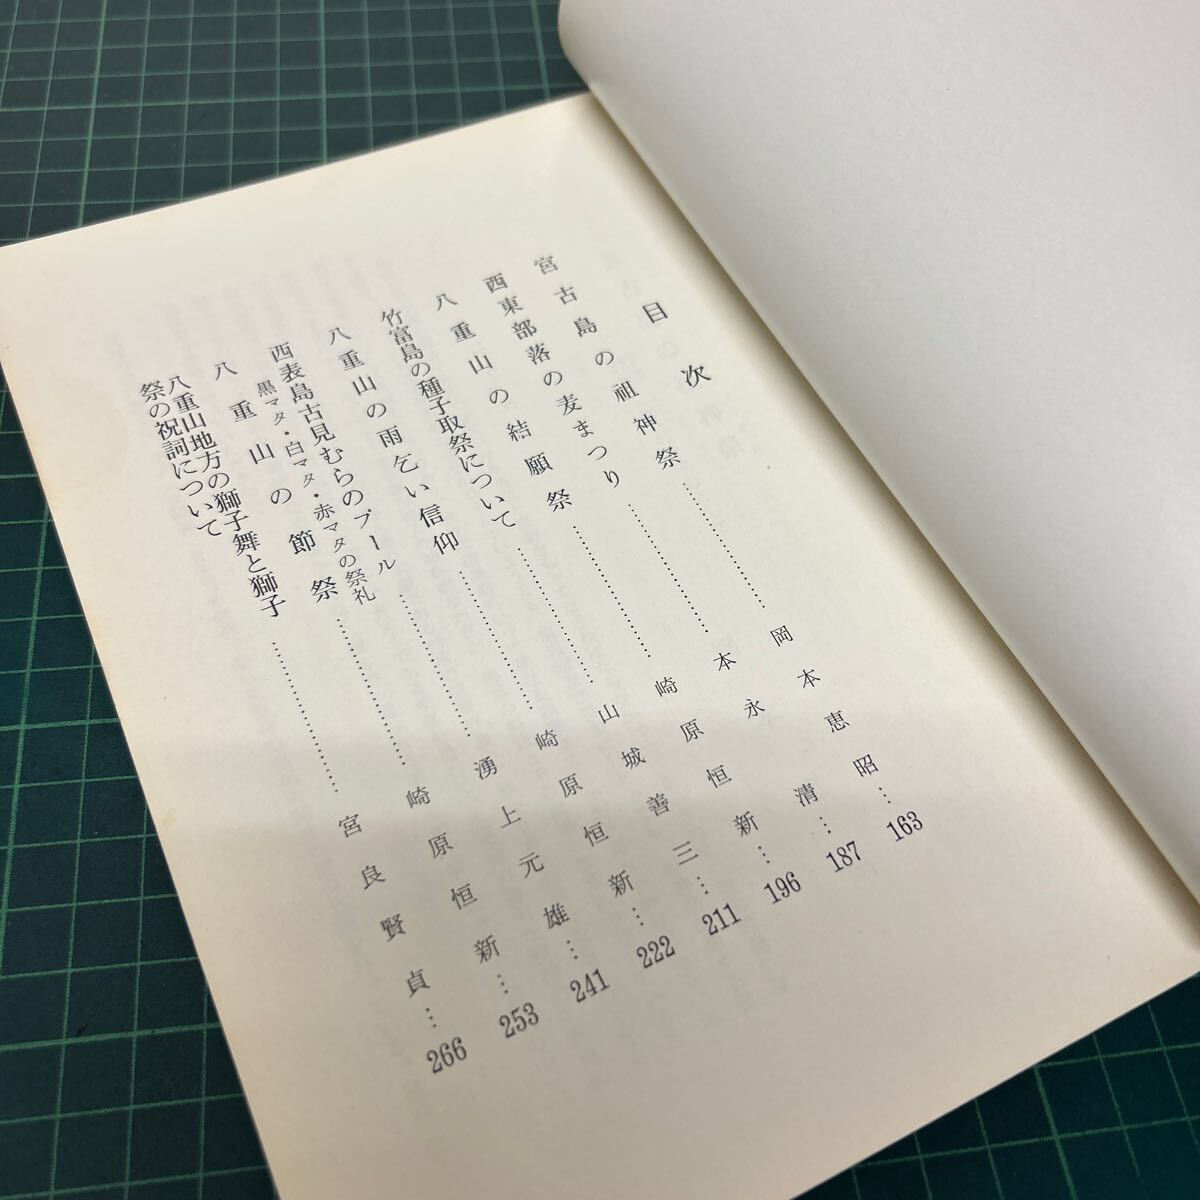 目次
宮古島の祖神祭……………岡本恵昭…163
西東部落の麦まつり……………本永清…187
八重山の結願祭……………崎原恒新…196
竹富島の種子取祭について……………山城善三…211
八重山の雨乞い信仰……………崎原恒新…222
西表島古見むらのプール……………湧上元雄…241
黒マタ・白マタ・赤マタの祭礼
八重山の節祭……………崎原恒新…253
八重山地方の獅子舞と獅子……………宮良賢貞…266
祭の祝詞について